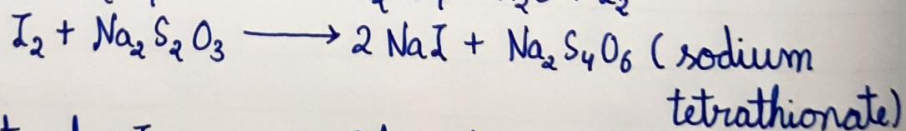 I₂ + Na₂S₂O₃ ⟶ 2 NaI + Na₂S₄O₆ (sodium
tetrathionate)